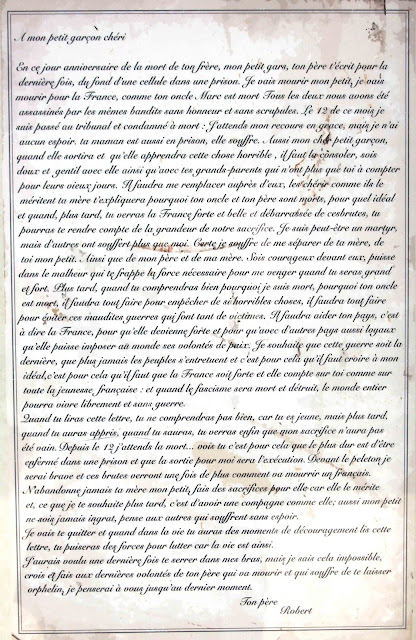 A mon petit garçon chéri
En ce jour anniversaire de la mort de ton frère, mon petit gars, ton père t'écrit pour la
dernière fois, du fond d'une cellule dans une prison. Je vais mourir mon petit, je vais
mourir pour la France, comme ton oncle Marc est mort Tous les deux nous avons été
assassinés par les mêmes bandits sans honneur et sans scrupules. Le 12 de ce mois je
suis passé au tribunal et condamné à mort ; J'attends mon recours en grace, mais je n'ai
aucun espoir. ta maman est aussi en prison, elle souffre. Aussi mon cher petit garçon,
quand elle sortira et qu'elle apprendra cette chose horrible , il faut la consoler, sois
doux et gentil avec elle ainsi qu'avec tes grands-parents qui n'ont plus que toi à compter
pour leurs vieux jours. Il faudra me remplacer auprès d'eux, les chérir comme ils le
méritent ta mère t'expliquera pourquoi ton oncle et ton père sont morts, pour quel idéal
et quand, plus tard, tu verras la France forte et belle et débarrassée de cesbrutes, tu
pourras te rendre compte de la grandeur de notre sacrifice. Je suis peut-être un martyr,
mais d'autres ont souffert plus que moi. Certe je souffre de me séparer de ta mère, de
toi mon petit. Ainsi que de mon père et de ma mère. Sois courageux devant eux, puisse
dans le malheur qui te frappe la force nécessaire pour me venger quand tu seras grand
et fort. Plus tard, quand tu comprendras bien pourquoi je suis mort, pourquoi ton oncle
est mort, il faudra tout faire pour empêcher de si horribles choses, il faudra tout faire
pour éviter ces maudites guerres qui font tant de victimes. Il faudra aider ton pays, c'est
à dire la France, pour qu'elle devienne forte et pour qu'avec d'autres pays aussi loyaux
qu'elle puisse imposer au monde ses volontés de paix. Je souhaite que cette guerre soit la
dernière, que plus jamais les peuples s'entretuent et c'est pour celà qu'il faut croire à mon
idéal,c'est pour cela qu'il faut que la France soit forte et elle compte sur toi comme sur
toute la jeunesse française : et quand le fascisme sera mort et détruit, le monde entier
pourra vivre librement et sans guerre.
Quand tu liras cette lettre, tu ne comprendras pas bien, car tu es jeune, mais plus tard,
quand tu auras appris, quand tu sauras, tu verras enfin que mon sacrifice n'aura pas
été vain. Depuis le 12 j'attends la mort... vois tu c'est pour cela que le plus dur est d'être
enfermé dans une prison et que la sortie pour moi sera l'exécution. Devant le peleton je
serai brave et ces brutes verront une fois de plus comment va mourir un français.
N'abandonne jamais ta mère mon petit, fais des sacrifices pour elle car elle le mérite
et, ce que je te souhaite plus tard, c'est d'avoir une compagne comme elle; aussi mon petit
ne sois jamais ingrat, pense aux autres qui souffrent sans espoir.
Je vais te quitter et quand dans la vie tu auras des moments de découragement lis cette
lettre, tu puiseras des forces pour lutter car la vie est ainsi.
J'aurais voulu une dernière fois te serrer dans mes bras, mais je sais cela impossible,
crois et fais aux dernières volontés de ton père qui va mourir et qui souffre de te laisser
orphelin, je penserai à vous jusqu'au dernier moment.
Ton père
Robert